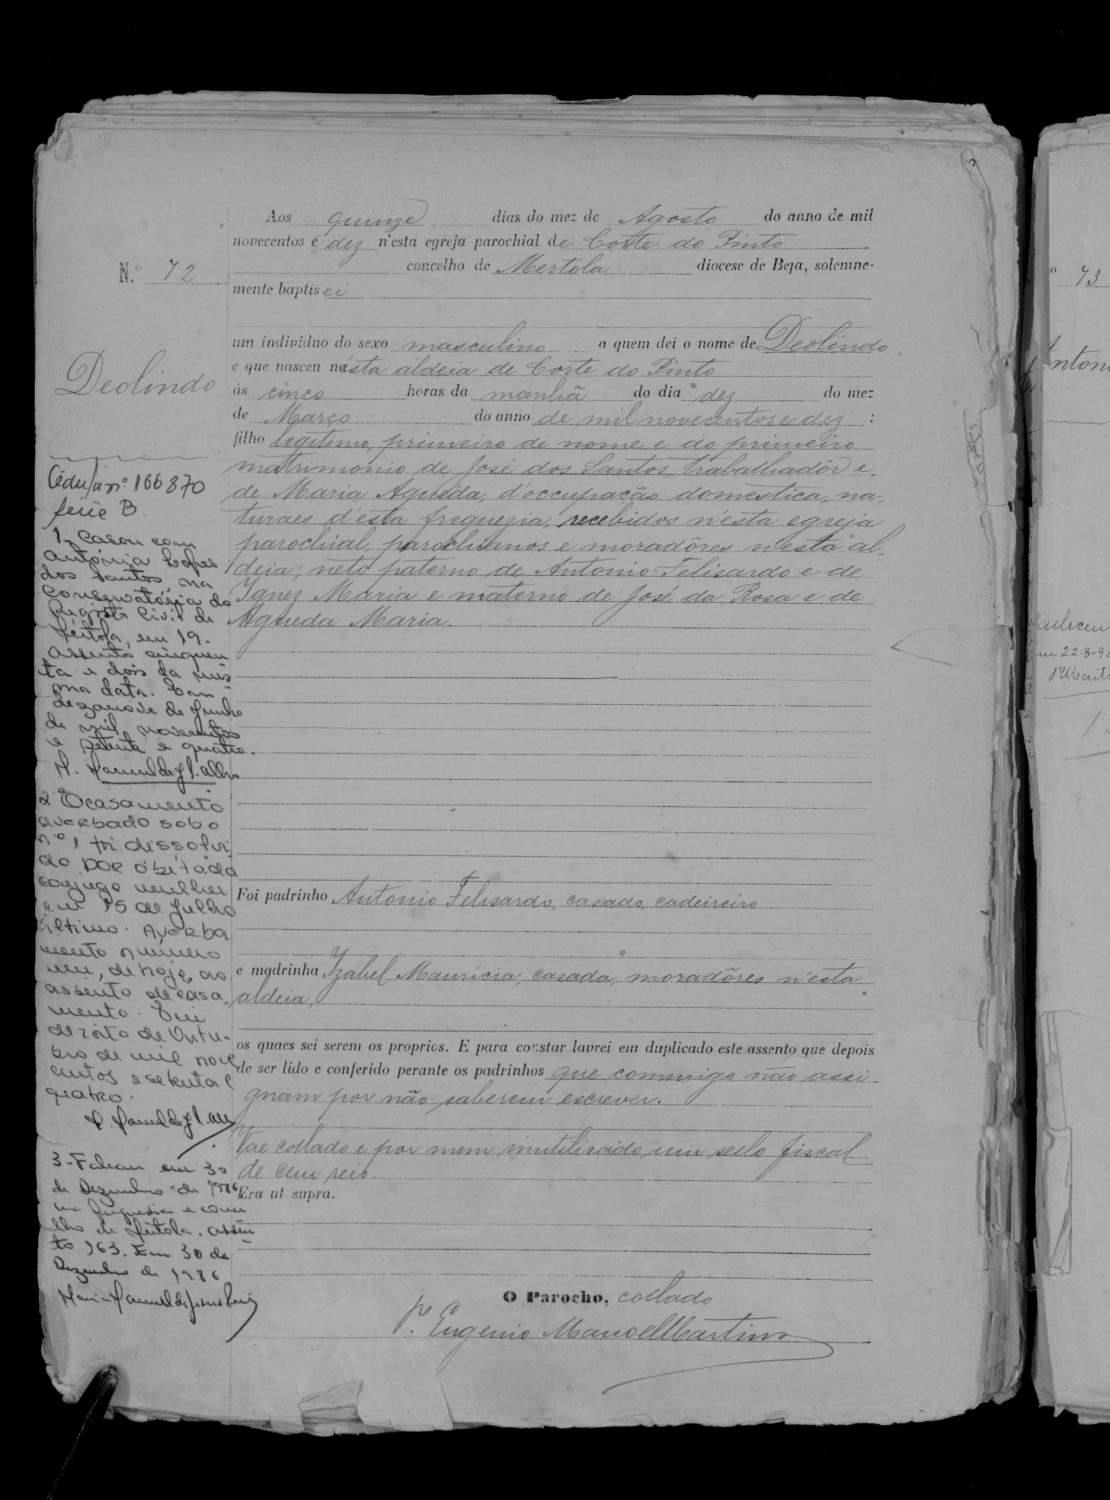 Aos quinze dias do mez de Agosto do anno de mil
novecentos e dez n'esta egreja parochial de Corte do Pinto
concelho de Mertola diocese de Beja, solemne-
mente baptisei
um individuo do sexo masculino a quem dei o nome de Deolindo
e que nasceu n'ésta aldeia de Corte do Pinto
ás cinco horas da manhã do dia dez do mez
de Março do anno de mil novecentos e dez :
filho legitimo, primeiro de nome e do primeiro
matrimonio de José dos Santos, trabalhadôr e
de Maria Agueda, d'occupação domestica, na-
turaes d'esta freguezia, recebidos n'esta egreja
parochial, parochianos e moradôres n'esta al-
deia; neto paterno de Antonio Felisardo e de
Ignez Maria e materno de José da Rosa e de
Agueda Maria.
Foi padrinho Antonio Felisardo, casado, cadeireiro
e madrinha Izabel Mauricia, casada, moradôres n'esta
aldeia,
os quaes sei serem os proprios. E para constar lavrei em duplicado este assento que depois
de ser lido e conferido perante os padrinhos que commigo não assi-
gnam por não saberem escrever.
Vae collado e por mim inutilisado um sello fiscal
de cem reis.
Era ut supra.
O Parocho, collado
P. Eugenio Manoel Martins
N.º 72
Deolindo
Cédula nº 166870
série B
1- Casou com
Antónia Lopes
dos Santos, na
Conservatória do
Registo Civil de
Mértola, em 19.
Assento cinquen
ta e dois da mes
ma data. Em
dezanove de Junho
de mil novecentos
e setenta e quatro.
2 O casamento
averbado sob o
nº 1 foi dissolvi
do por óbito da
conjuge mulher
em 15 de Julho
último. Averba
mento número
um, de hoje, ao
assento de casa
mento. Em
dezoito de Outu-
bro de mil nove
centos e setenta e
quatro.
3- Faleceu em 30
de Dezembro de 1986
na freguesia e conce
lho de Mértola. Assen
to 163. Em 30 de
Dezembro de 1986
º 73
Antoni